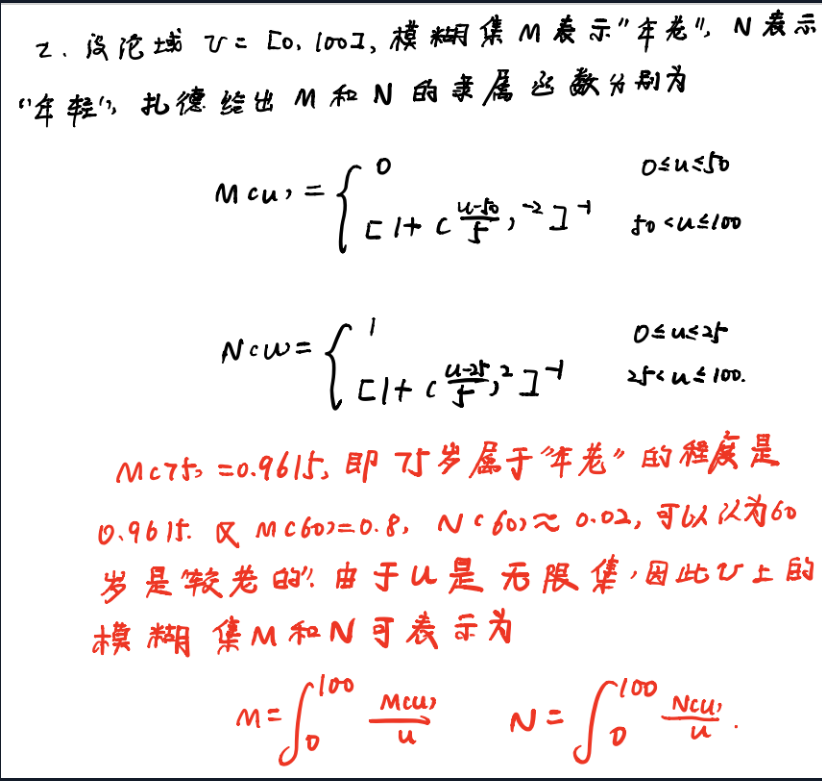 2. 设论域 U = [0, 100], 模糊集 M 表示"年老", N 表示
"年轻", 扎德给出 M 和 N 的隶属函数分别为
M(u) = { 0 0≤u≤50
[1+(\frac{u-50}{5})^{-2}]^{-1} 50<u≤100
N(u) = { 1 0≤u≤25
[1+(\frac{u-25}{5})^{2}]^{-1} 25<u≤100.
M(75) = 0.9615, 即 75岁属于"年老"的程度是
0.9615. 又 M(60)=0.8, N(60)≈0.02, 可以认为60
岁是"较老的". 由于U是无限集,因此U上的
模糊集M和N可表示为
M = \int_0^{100} \frac{M(u)}{u} N = \int_0^{100} \frac{N(u)}{u}.